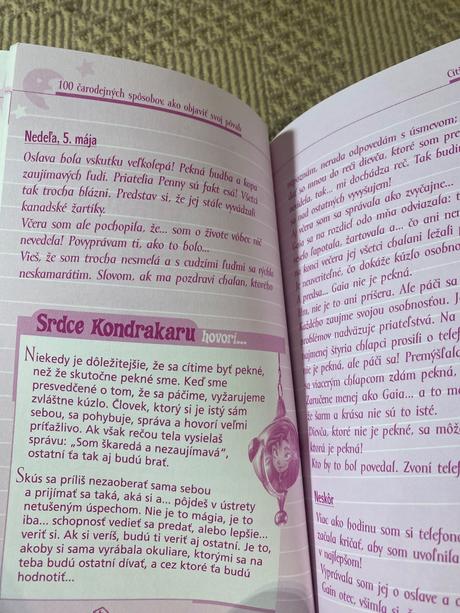 100 čarodejných spôsobov, ako objaviť svoj pôvab
Nedeľa, 5. mája
Oslava bola vskutku veľkolepá! Pekná hudba a kopa
zaujímavých ľudí. Priatelia Penny sú fakt esá! Všetci
tak trocha blázni. Predstav si, že jej stále vyvádzali
kanadské žartíky.
Včera som ale pochopila, že... som o živote vôbec nič
nevedela! Povyprávam ti, ako to bolo...
Vieš, že som trocha nesmelá a s cudzími ľuďmi sa rýchlo
neskamarátim. Slovom, ak ma pozdraví chalan, ktorého
Srdce Kondrakaru hovorí...
Niekedy je dôležitejšie, že sa cítime byť pekné,
než že skutočne pekné sme. Keď sme
presvedčené o tom, že sa páčime, vyžarujeme
zvláštne kúzlo. Človek, ktorý si je istý sám
sebou, sa pohybuje, správa a hovorí veľmi
príťažlivo. Ak však rečou tela vysielaš
správu: „Som škaredá a nezaujímavá“,
ostatní ťa tak aj budú brať.
Skús sa príliš nezaoberať sama sebou
a prijímať sa taká, aká si a... pôjdeš v ústrety
netušeným úspechom. Nie je to mágia, je to
iba... schopnosť vedieť sa predať, alebo lepšie...
veriť si. Ak si veríš, budú ti veriť aj ostatní. Je to,
akoby si sama vyrábala okuliare, ktorými sa na
teba budú ostatní dívať, a cez ktoré ťa budú
hodnotiť...
nepoznám, neruda odpovedám s úsmevom:
dá so mnou do reči dievča, ktoré som pre
nevidela, tak... mi dochádza reč. Tak budí
nad ostatných vyvyšujem!
Včera som sa správala ako zvyčajne...
Gaia sa na rozdiel odo mňa odviazala: t
veselo ťapotala, žartovala a... čo ani ner
na konci večera jej všetci chalani ležali p
Je neuveriteľné, čo dokáže kúzlo osobno
A predsa... Gaia nie je pekná.
Nie, nie je to ani príšera. Ale páči sa
Každého zaujme svojou osobnosťou. J
problémov nadväzuje priateľstvá. Na
najmenej štyria chlapci prosili o telef
nie je pekná, ale páči sa! Premýšľala
sa viacerým chlapcom zdám pekná,
Zaručene menej ako Gaia... a to m
že šarm a krása nie sú to isté.
Dievča, ktoré nie je pekné, sa môže
ktorá je pekná!
Kto by to bol povedal. Zvoní telef
Neskôr
Viac ako hodinu som si telefono
začala kričať, aby som uvoľnila
v najlepšom!
Vyprávala som jej o oslave a o
Gain otec, všimla si, že